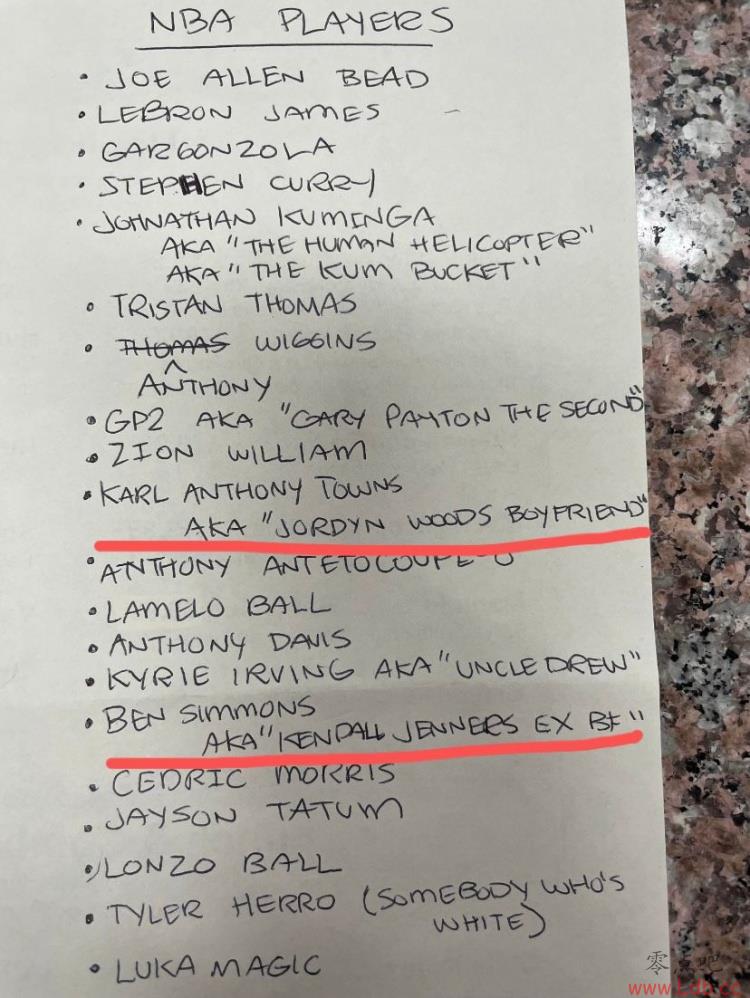 NBA PLAYERS
• JOE ALLEN BEAD
• LEBRON JAMES
• GARGONZOLA
• STEPHEN CURRY
• JOHNATHAN KUMINGA
AKA "THE HUMAN HELICOPTER"
AKA "THE KUM BUCKET"
• TRISTAN THOMAS
• THOMAS WIGGINS
^
ANTHONY
• GP2 AKA "GARY PAYTON THE SECOND"
• ZION WILLIAM
• KARL ANTHONY TOWNS
AKA "JORDYN WOODS BOYFRIEND"
• ANTHONY
• LAMELO BALL
• ANTHONY DAVIS
• KYRIE IRVING AKA "UNCLE DREW"
• BEN SIMMONS
AKA "KENDALL JENNERS EX BF"
• CEDRIC MORRIS
• JAYSON TATUM
• LONZO BALL
• TYLER HERRO (SOMEBODY WHO'S
WHITE)
• LUKA MAGIC
零
www.Ldb.cc